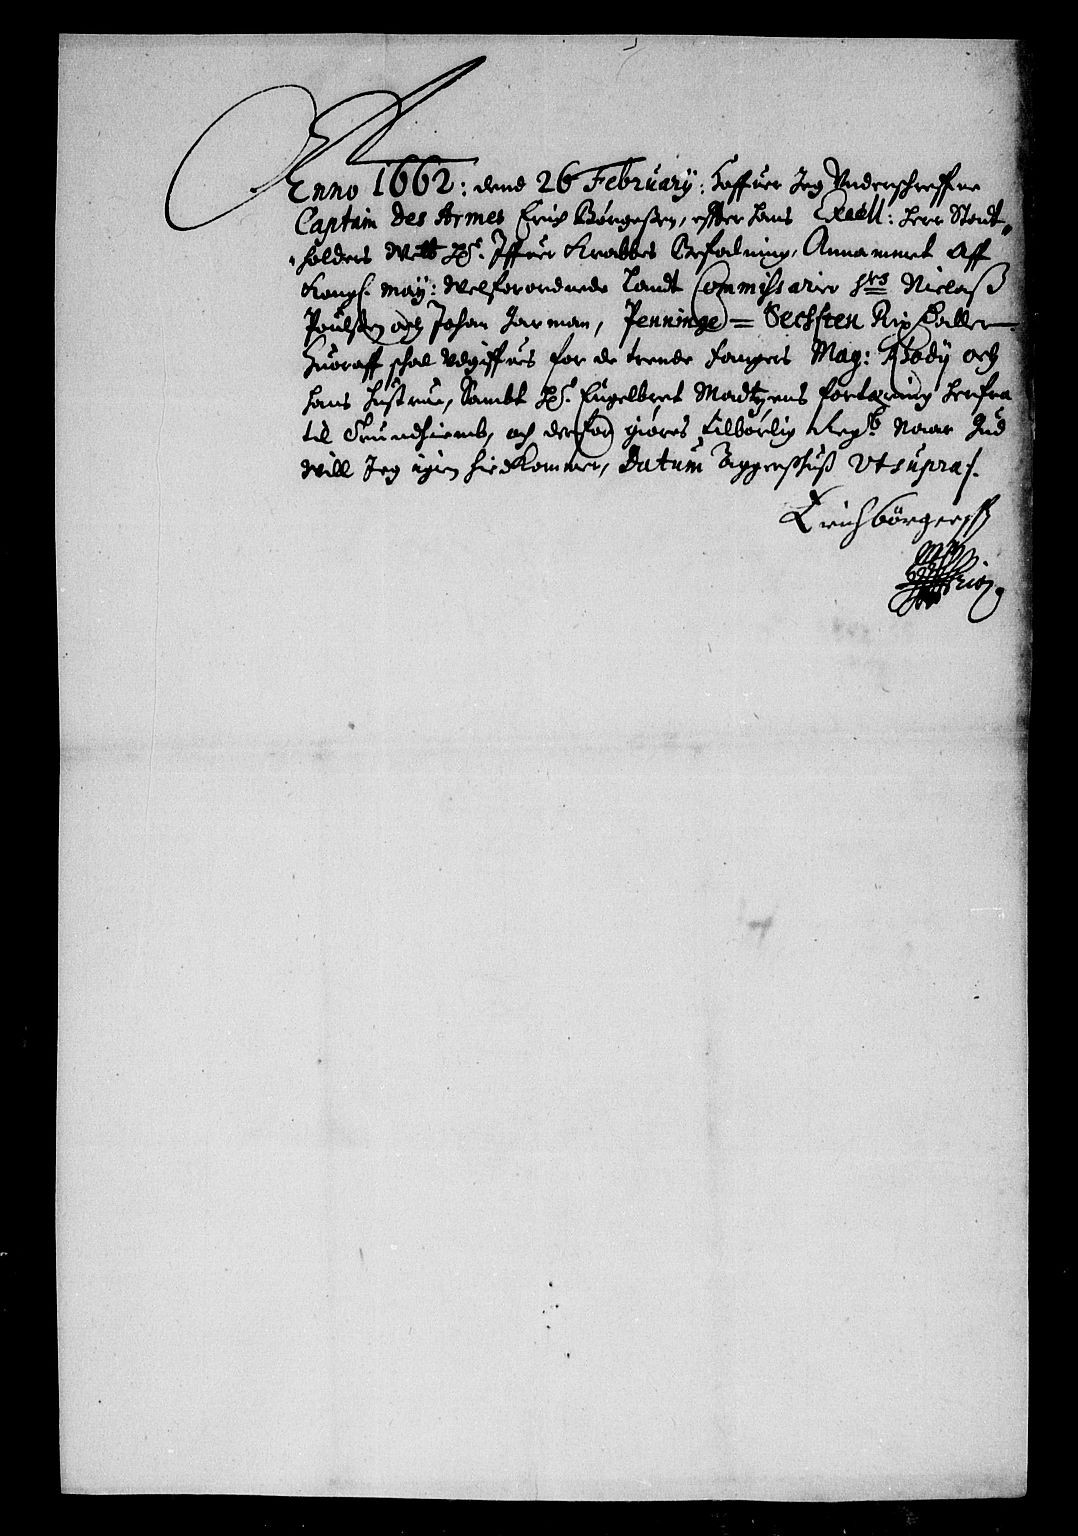 Anno 1662: dend 26 February: haffuer Jeg Underschreffne
Captain des Armes Erich Börgeßen, effter hans Excell: Herr Stadt„
„holders Welb: Hr. Iffuer Krabbes Befalning, Annammet Aff
Kongl. May: Welforordnede Landt Commissarier Hrs Nielaß
Poulßen och Johan Garman, Penninge = Sechsten Rix Daller
huoraff schal udgiffues for de trende fangers Mag: Rhodÿ och
hans Hustrue, Sambt Hr. Engelbret Madtzens fortæring herfra
til Trundhiemb, och derfor giøres tilbørlig Regsb. Naar Gud
will Jeg igien hid Kommer, Datum Aggershuß Ut supra.
Erich börgerß